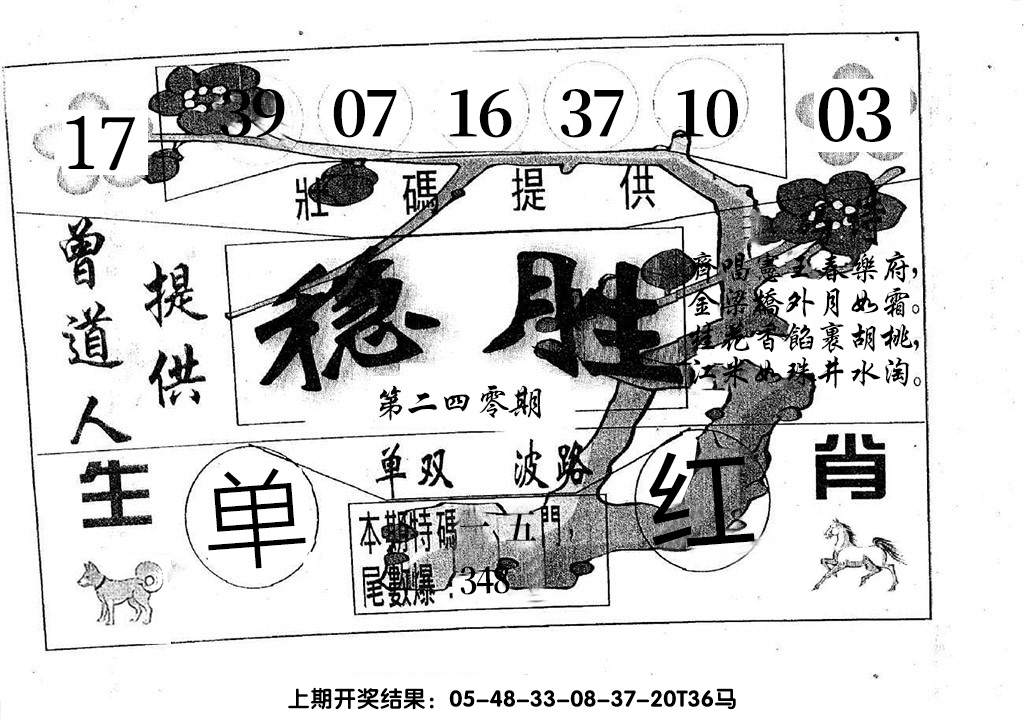 17 39 07 16 37 10 03
壯碼提供
特
曾道人
提供
稳胜
第二四零期
齊唱憲王春樂府，
金梁橋外月如霜。
桂花香餡裹胡桃，
江米如珠井水淘。
单双 波路
生肖
单
红
本期特碼一、五門，
尾數爆：348
上期开奖结果：05-48-33-08-37-20T36马